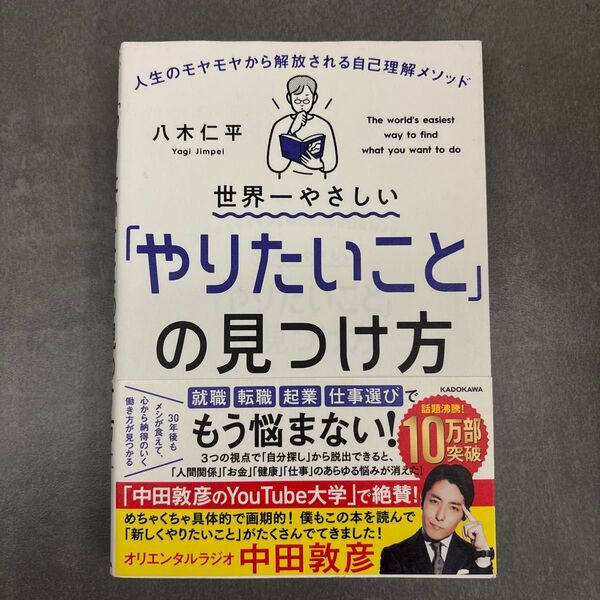 人生のモヤモヤから解放される自己理解メソッド
八木仁平
Yagi Jimpei
The world's easiest
way to find
what you want to do
世界一やさしい
「やりたいこと」
の見つけ方
30年後も
メシが食えて、
心から納得のいく
働き方が見つかる
就職 転職 起業 仕事選びで
もう悩まない!
KADOKAWA
話題沸騰!
10万部
突破
3つの視点で「自分探し」から脱出できると、
「人間関係」「お金」「健康」「仕事」のあらゆる悩みが消えた!
「中田敦彦のYouTube大学」で絶賛!
めちゃくちゃ具体的で画期的!僕もこの本を読んで
「新しくやりたいこと」がたくさんでてきました!
オリエンタルラジオ 中田敦彦